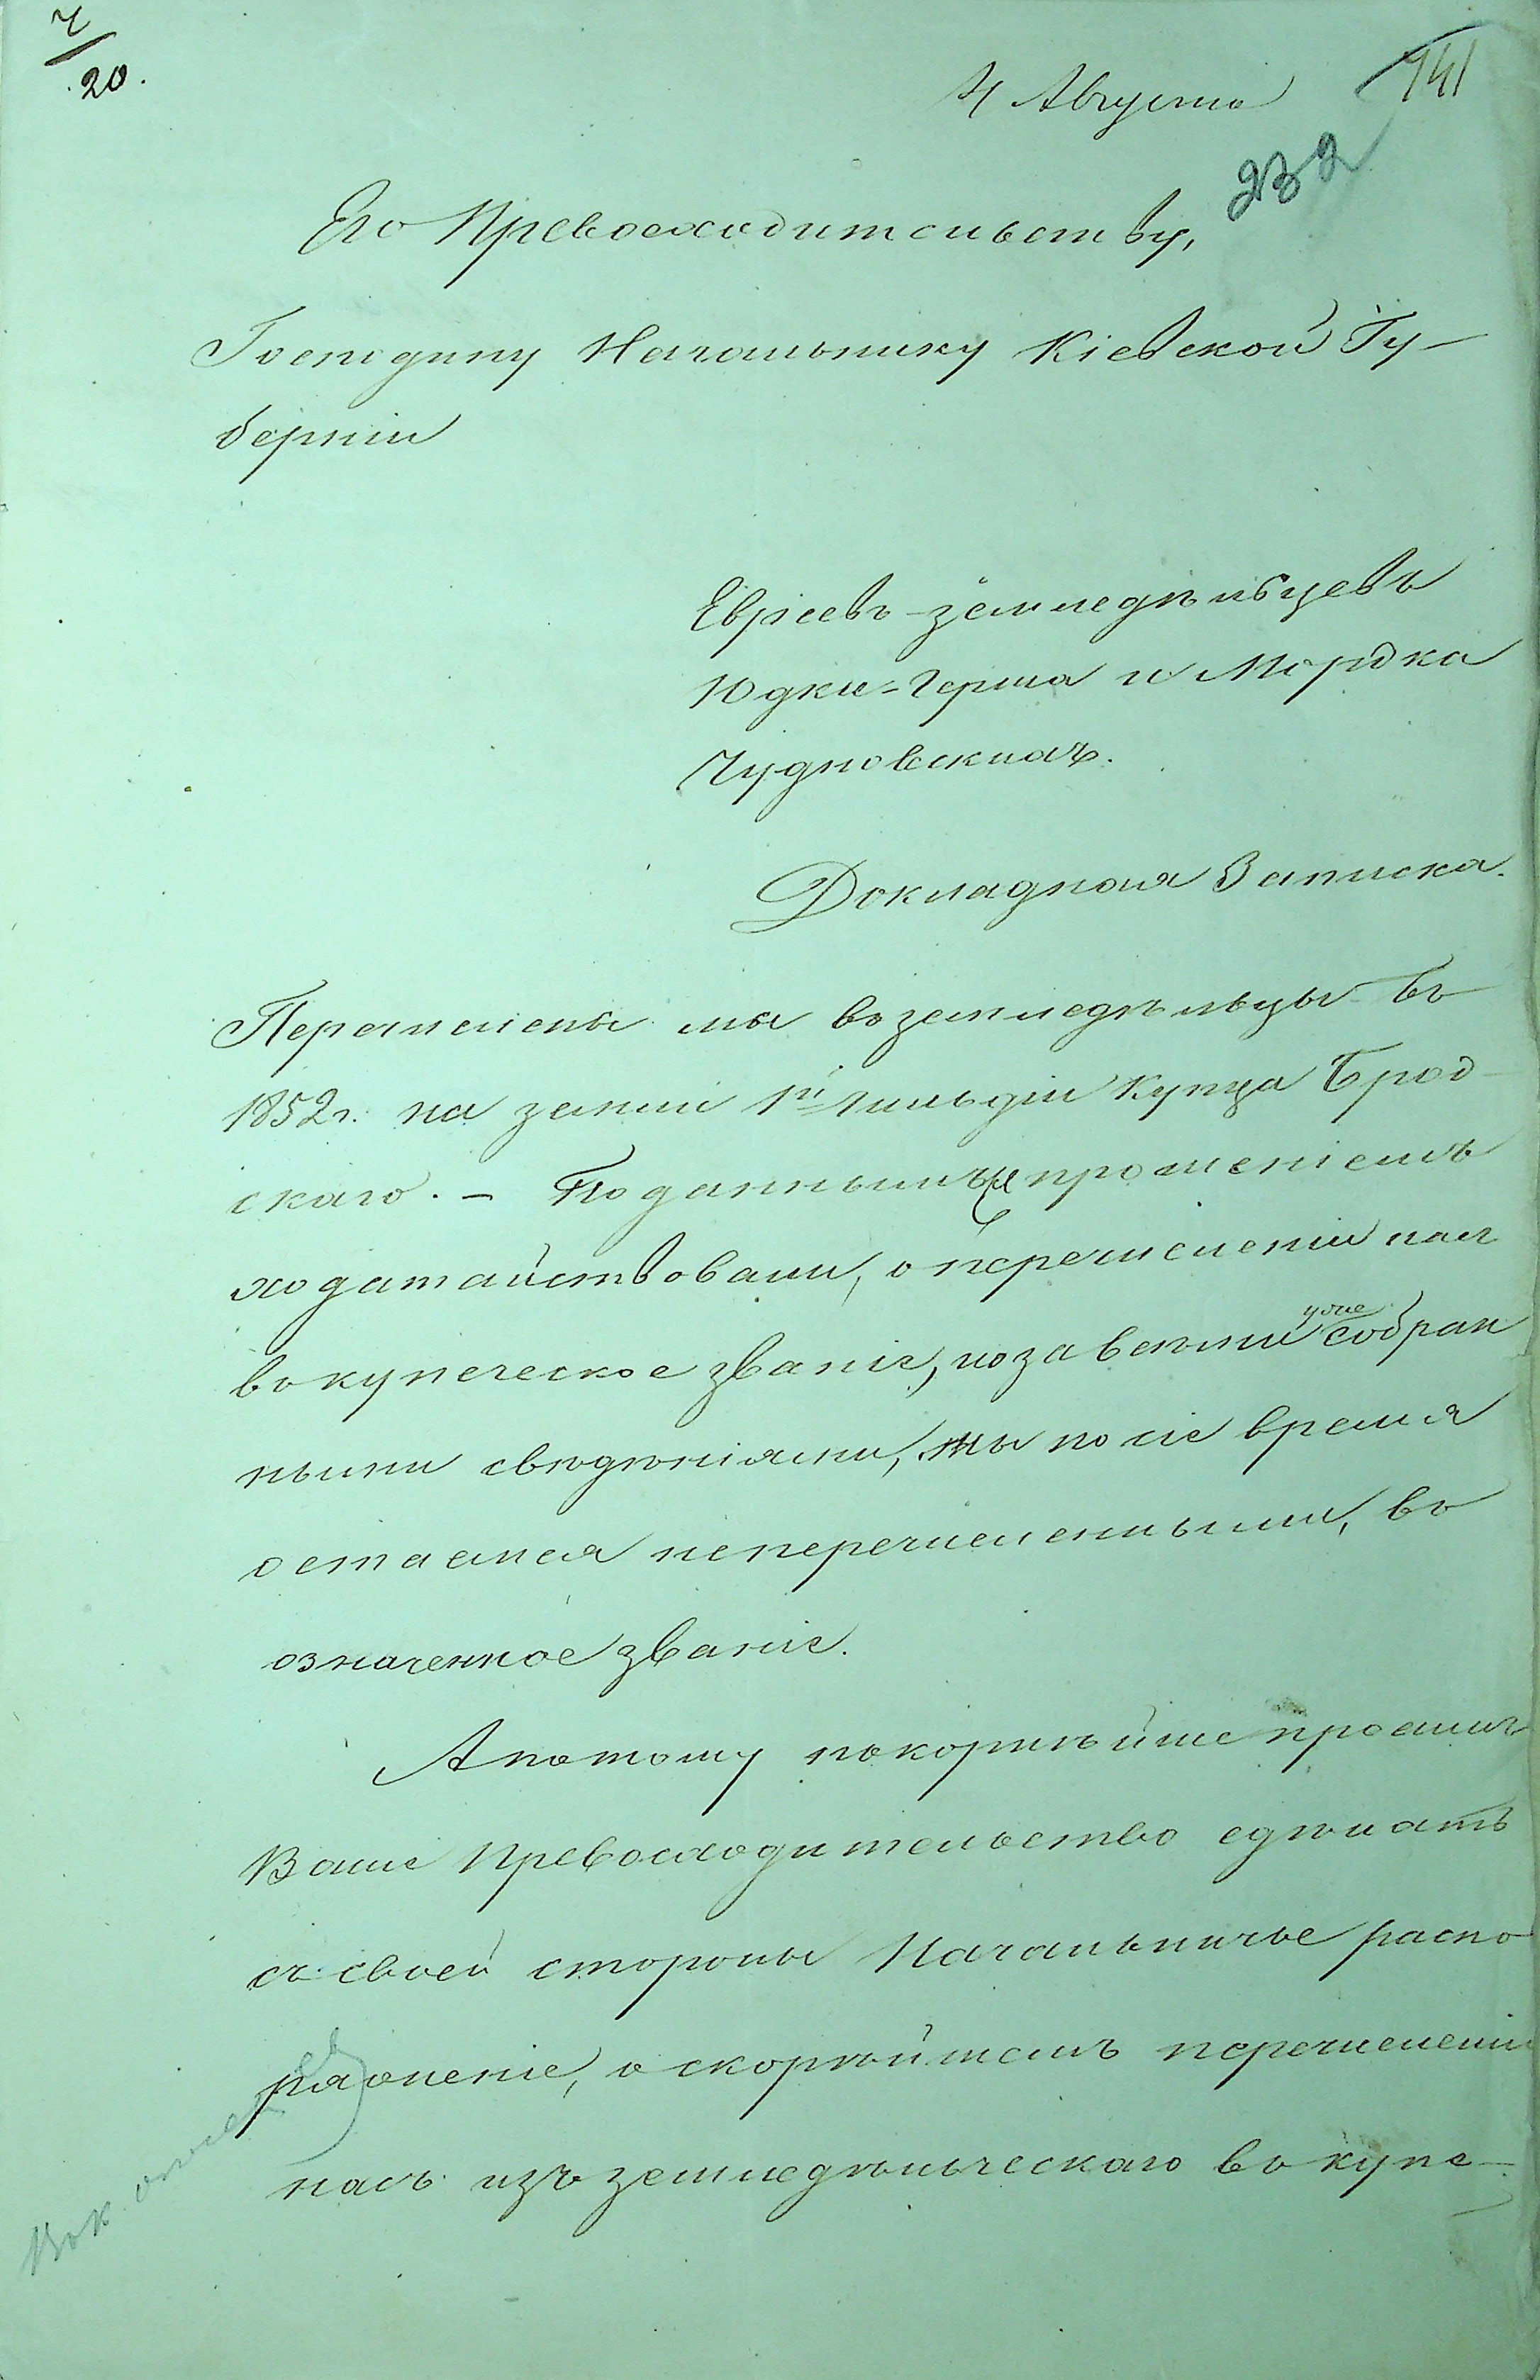 4/20.
4 Августа
141
232
Его Превосходительству,
Господину Начальнику Кіевской Гу-
берніи
Евреевъ-земледѣльцевъ
Юдки-Герша и Мордка
Чудновскихъ.
Докладная Записка.
Перечислены мы въ земледѣльцы въ
1852 г. на земли 1й гильдіи купца Брод-
скаго. — Поданнымъ прошеніемъ
ходатайствовали, о перечисленіи нас
въ купеческое званіе, но за всѣми уже собран
ными свѣдѣніями, мы по сіе время
остаемся неперечисленными, въ
означенное званіе.
А потому покорнѣйше просимъ
Ваше Превосходительство сдѣлать
съ своей стороны Начальничье распо
ряженіе, о скорѣйшемъ перечисленіи
насъ изъ земледѣльческаго въ купе-